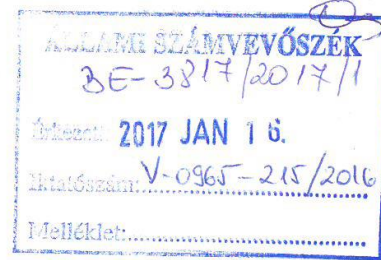 ÁLLAMI SZÁMVEVŐSZÉK
BE-3817/2017/1
Érkezett: 2017 JAN 16.
Iktatószám: V-0965-215/2016
Melléklet: